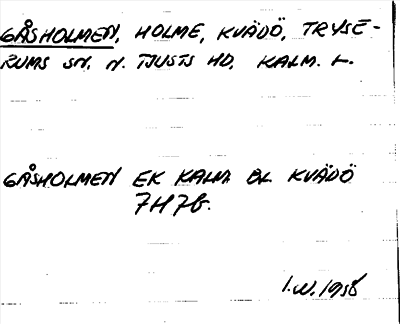 GÅSHOLMEN, HOLME, KVÄDÖ, TRYSE-
RUMS SN. N. TJUSTS HD. KALM. L.
GÅSHOLMEN EK KALM BL KVÄDÖ
7H7b.
I.W. 1958